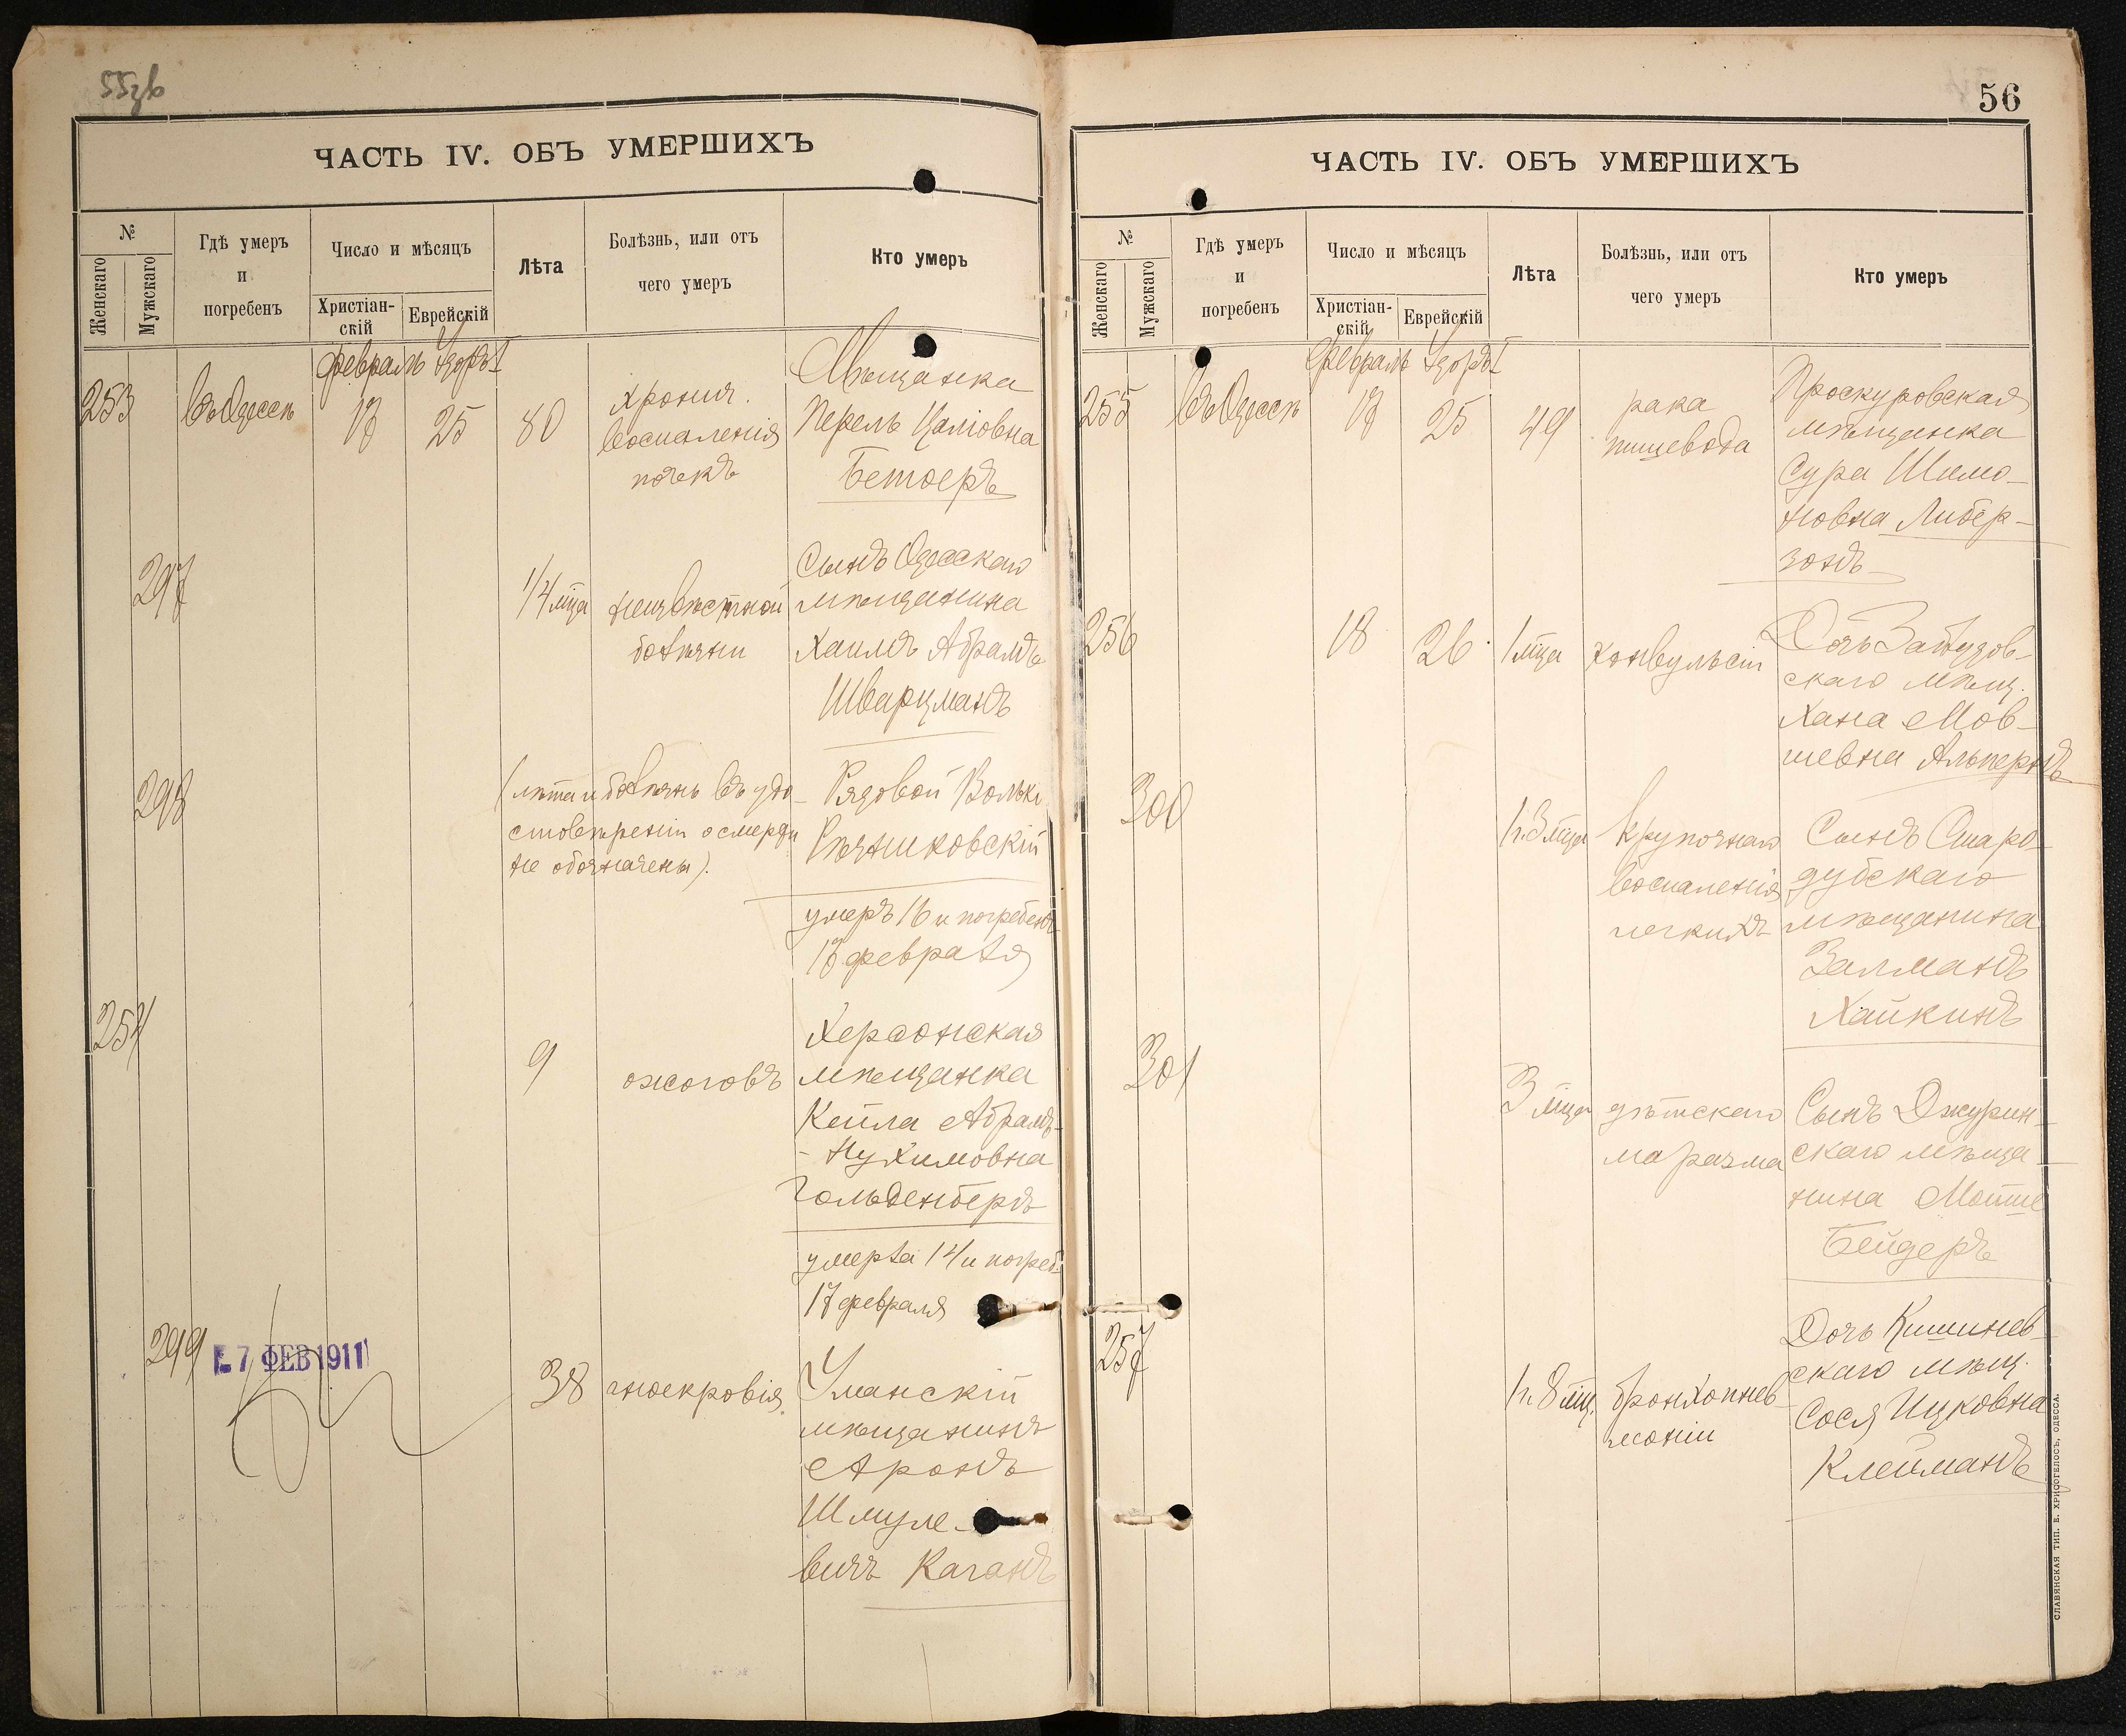 55зв
ЧАСТЬ IV. ОБЪ УМЕРШИХЪ
№
Женскаго
Мужскаго
Гдѣ умеръ
и
погребенъ
Число и мѣсяцъ
Христіан-
скій
Еврейскій
Лѣта
Болѣзнь, или отъ
чего умеръ
Кто умеръ
февраль Адоръ I
253
въ Одессѣ
17
25
80
хронич.
воспаленія
почекъ
Мѣщанка
Перель Цаліовна
Бетоеръ
297
1/4 мца
неизвѣстной
болѣзни
Сынъ Одесскаго
мѣщанина
Хаимъ Абрамъ
Шварцманъ
298
(лѣта и болѣзнь въ удо-
стовѣреніи о смерти
не обозначены).
Рядовой Волько
Рѣзниковскій
умеръ 16 и погребенъ
17 февраля
254
9
ожоговъ
Херсонская
мѣщанка
Кейла Абрамъ-
-Нухимовна
Гольденбергъ
умерла 14 и погреб.
17 февраля
299
17 ФЕВ 1911
38
гноекровія
Уманскій
мѣщанинъ
Аронъ
Шмуле-
вичъ Каганъ
56
ЧАСТЬ IV. ОБЪ УМЕРШИХЪ
№
Женскаго
Мужскаго
Гдѣ умеръ
и
погребенъ
Число и мѣсяцъ
Христіан-
скій
Еврейскій
Лѣта
Болѣзнь, или отъ
чего умеръ
Кто умеръ
февраль Адоръ I
255
въ Одессѣ
17
25
49
рака
пищевода
Проскуровская
мѣщанка
Сура Шимо-
новна Либер-
зонъ
256
18
26
1 мца
конвульсіи
Дочь Заблудов-
скаго мѣщ.
Хана Мов-
шевна Альпернъ
300
1г. 3 мца
крупознаго
воспаленія
легкихъ
Сынъ Старо-
дубскаго
мѣщанина
Залманъ
Хайкинъ
301
3 мца
дѣтскаго
маразма
Сынъ Джурин-
скаго мѣща-
нина Мотше
Бейдеръ
257
1г. 8 мц.
бронхопнев-
моніи
Дочь Кишинев-
скаго мѣщ.
Сося Ицковна
Клейманъ
СЛАВЯНСКАЯ ТИП. Е. ХРИСОГЕЛОСЪ, ОДЕССА.